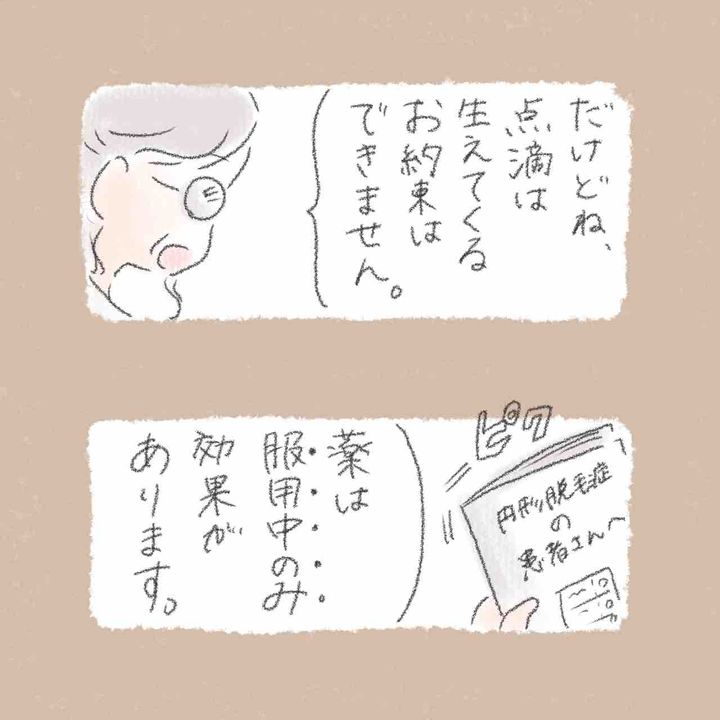 だけどね、
点滴は
生えてくる
お約束は
できません。
ピク
円形脱毛症
の
患者さんへ
薬は
服用中のみ
効果が
あります。